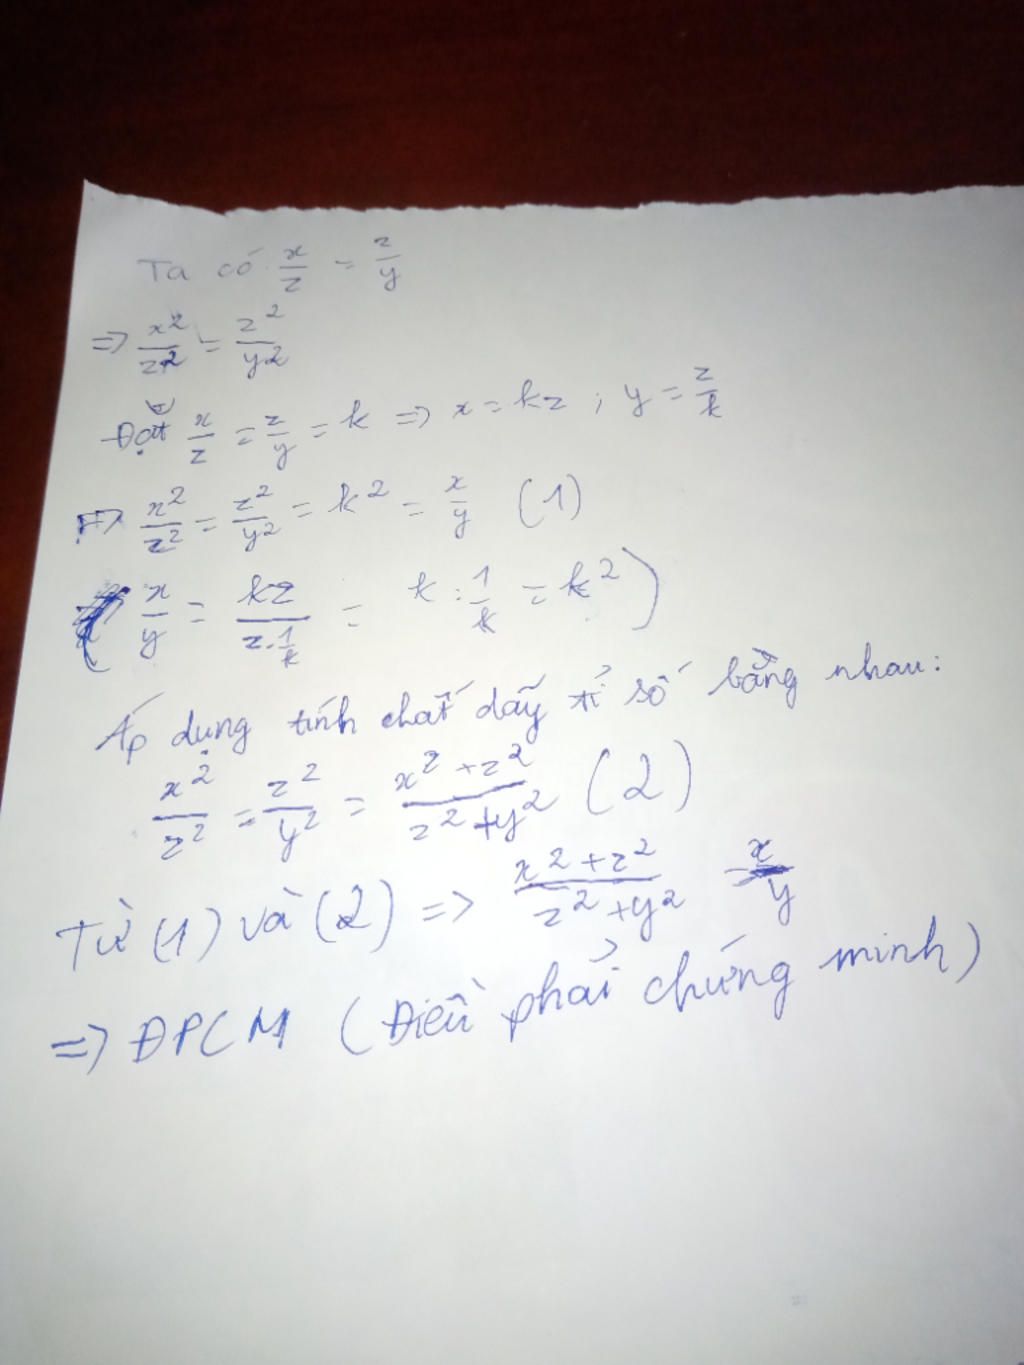 Ta có x/z = z/y
=> x²/z² = z²/y²
Đặt x/z = z/y = k => x = kz ; y = z/k
=> x²/z² = z²/y² = k² = x/y (1)
( x/y = kz/(z.1/k) = k : 1/k = k² )
Áp dụng tính chất dãy tỉ số bằng nhau:
x²/z² = z²/y² = (x² + z²)/(z² + y²) (2)
Từ (1) và (2) => (x² + z²)/(z² + y²) = x/y
=> ĐPCM (Điều phải chứng minh)